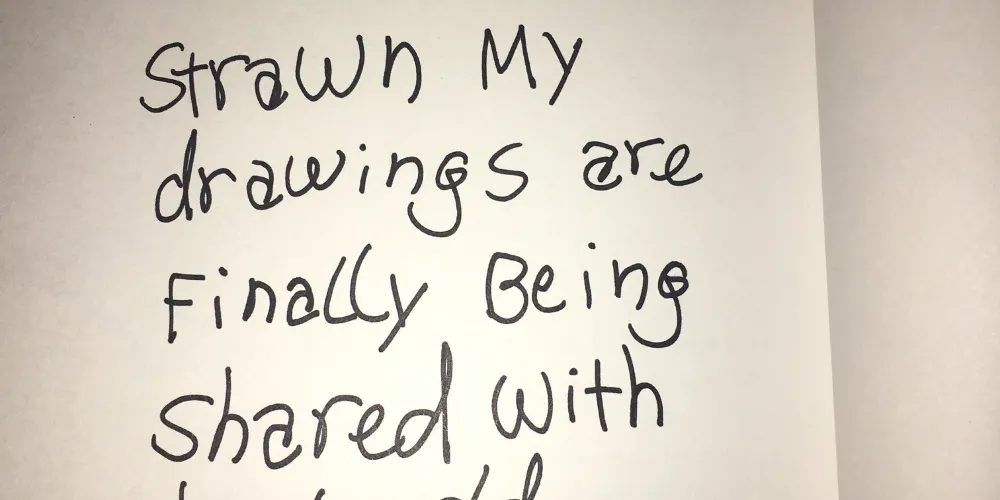 Strawn My
drawings are
Finally Being
shared with